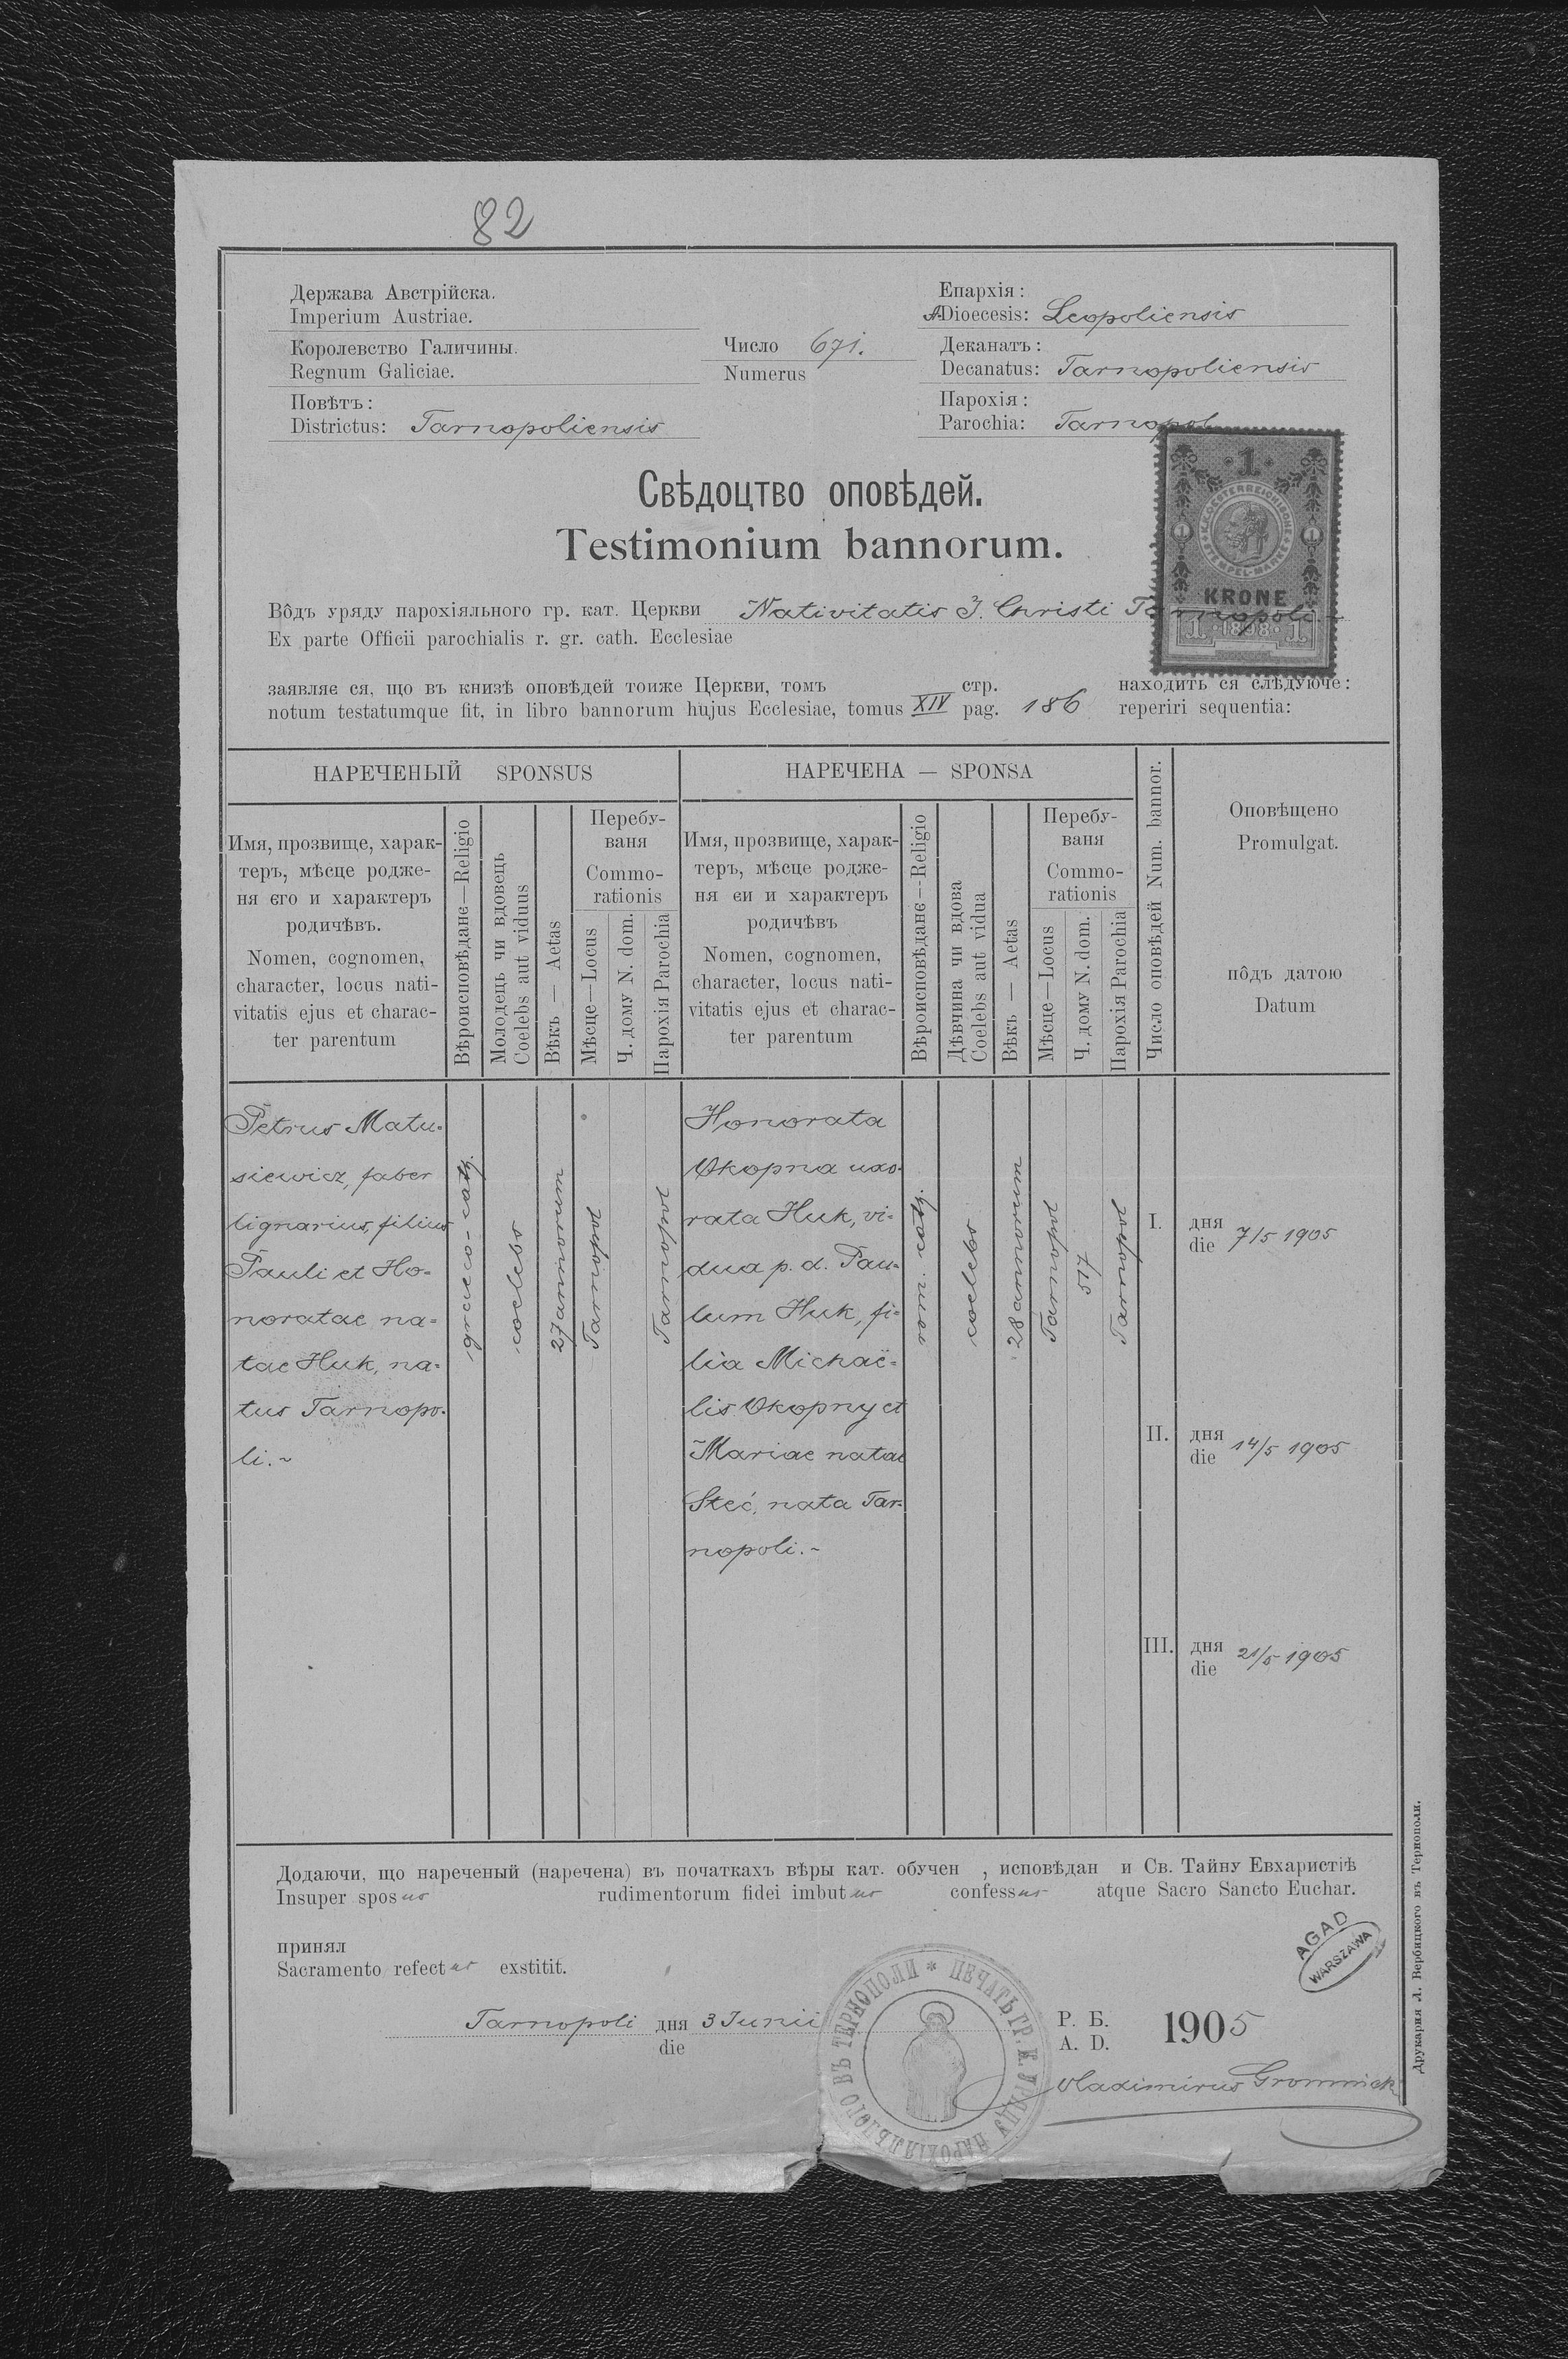 82
Держава Австрійска.
Imperium Austriae.
Королевство Галичины.
Regnum Galiciae.
Повѣтъ:
Districtus: Tarnopoliensis
Число 671.
Numerus
Епархія:
A.Dioecesis: Leopoliensis
Деканатъ:
Decanatus: Tarnopoliensis
Парохія:
Parochia: Tarnopol
Свѣдоцтво оповѣдей.
Testimonium bannorum.
1
K.K. OESTERREICHISCHE STEMPEL-MARKE
1 1
KRONE
1 1898 1
Вôдъ уряду парохіяльного гр. кат. Церкви Nativitatis J. Christi Tarnopoli
Ex parte Officii parochialis r. gr. cath. Ecclesiae
заявляє ся, що въ книзѣ оповѣдей тоиже Церкви, томъ стр. находить ся слѣдуюче:
notum testatumque fit, in libro bannorum hujus Ecclesiae, tomus XIV pag. 186 reperiri sequentia:
НАРЕЧЕНЫЙ SPONSUS
Имя, прозвище, харак-
теръ, мѣсце роджe-
ня єго и характеръ
родичѣвъ.
Nomen, cognomen,
character, locus nati-
vitatis ejus et charac-
ter parentum
Вѣроисповѣданє—Religio
Молодець чи вдовець
Coelebs aut viduus
Вѣкъ — Aetas
Перебу-
ваня
Commo-
rationis
Мѣсце—Locus
Ч. дому N. dom.
Парохія Parochia
НАРЕЧЕНА — SPONSA
Имя, прозвище, харак-
теръ, мѣсце роджe-
ня єи и характеръ
родичѣвъ
Nomen, cognomen,
character, locus nati-
vitatis ejus et charac-
ter parentum
Вѣроисповѣданє—Religio
Дѣвчина чи вдова
Coelebs aut vidua
Вѣкъ — Aetas
Перебу-
ваня
Commo-
rationis
Мѣсце—Locus
Ч. дому N. dom.
Парохія Parochia
Число оповѣдей Num. bannor.
Оповѣщено
Promulgat.
пôдъ датою
Datum
Petrus Matu-
siewicz, faber
lignarius, filius
Pauli et Ho-
noratae na-
tae Huk, na-
tus Tarnopo-
li.~
graeco-cath.
coelebs
27 annorum
Tarnopol
Tarnopol
Honorata
Okopna uxo-
rata Huk, vi-
dua p. d. Pau-
lum Huk, fi-
lia Michaë-
lis Okopny et
Mariae natae
Steć, nata Tar-
nopoli.~
rom. cath.
coelebs
28 annorum
Tarnopol
517
Tarnopol
I. дня
die 7/5 1905
II. дня
die 14/5 1905
III. дня
die 21/5 1905
Додаючи, що нареченый (наречена) въ початкахъ вѣры кат. обучен , исповѣдан и Св. Тайну Евхаристіѣ
Insuper sposus rudimentorum fidei imbutus confessus atque Sacro Sancto Euchar.
принял
Sacramento refectus exstitit.
AGAD
WARSZAWA
Tarnopoli дня 3 Junii
die
Р. Б.
A. D. 1905
ПЕЧАТЬ ГР. К. УРЯДУ ПАРОХІЯЛЬНОГО ВЪ ТЕРНОПОЛИ *
Vladimirus Gromnick
Друкарня Л. Вербицкого въ Тернополи.